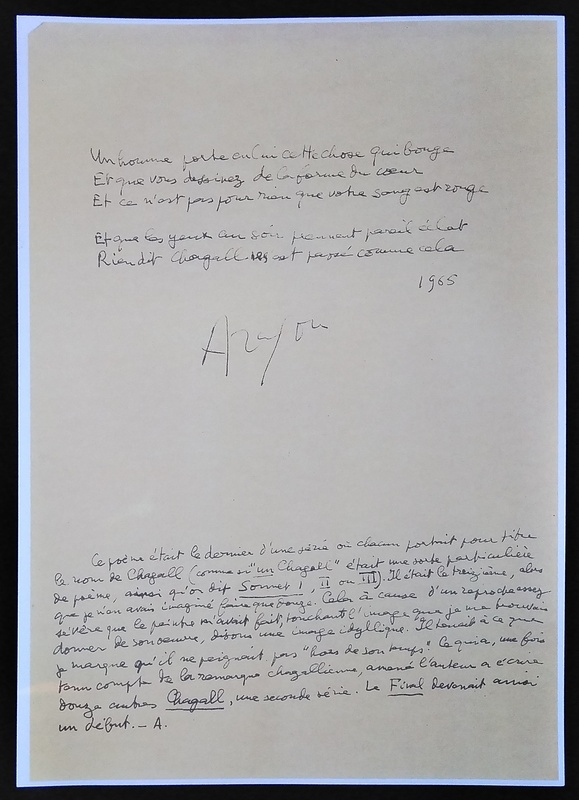 Un homme porte en lui cette chose qui bouge
Et que vous dessinez de la forme du cœur
Et ce n'est pas pour rien que votre sang est rouge
Et que les yeux au soir prennent pareil éclat
Rien dit Chagall ne s'est passé comme cela
1965
Aragon
Ce poème était le dernier d'une série où chacun portait pour titre
le nom de Chagall (comme si "un Chagall" était une sorte particulière
de poème, ainsi qu'on dit Sonnet I, II ou III). Il était le treizième, alors
que je n'en avais imaginé faire que douze. Cela à cause d'un reproche assez
sévère que le peintre m'avait fait, touchant l'image que je me trouvais
donner de son œuvre, disons une image idyllique. Il tenait à ce que
je marque qu'il ne peignait pas "hors de son temps". Ce qui a, une fois
tenu compte de la remarque chagallienne, amené l'auteur à écrire
douze autres Chagall, une seconde série. Le Final devenait ainsi
un début. — A.